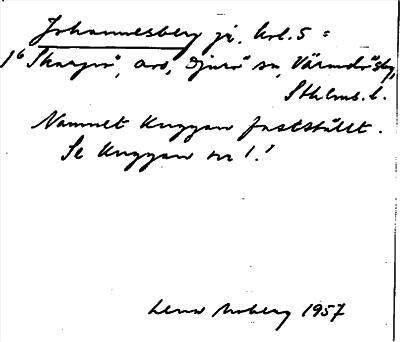 Johannesberg jr. krl. 5 =
1⁶ Skarpö, avs, Djurö sn, Värmdö sky,
Sthlms. l.
Namnet Knggan fastställt.
Se Knggan nr 1!
Lena Moberg 1957